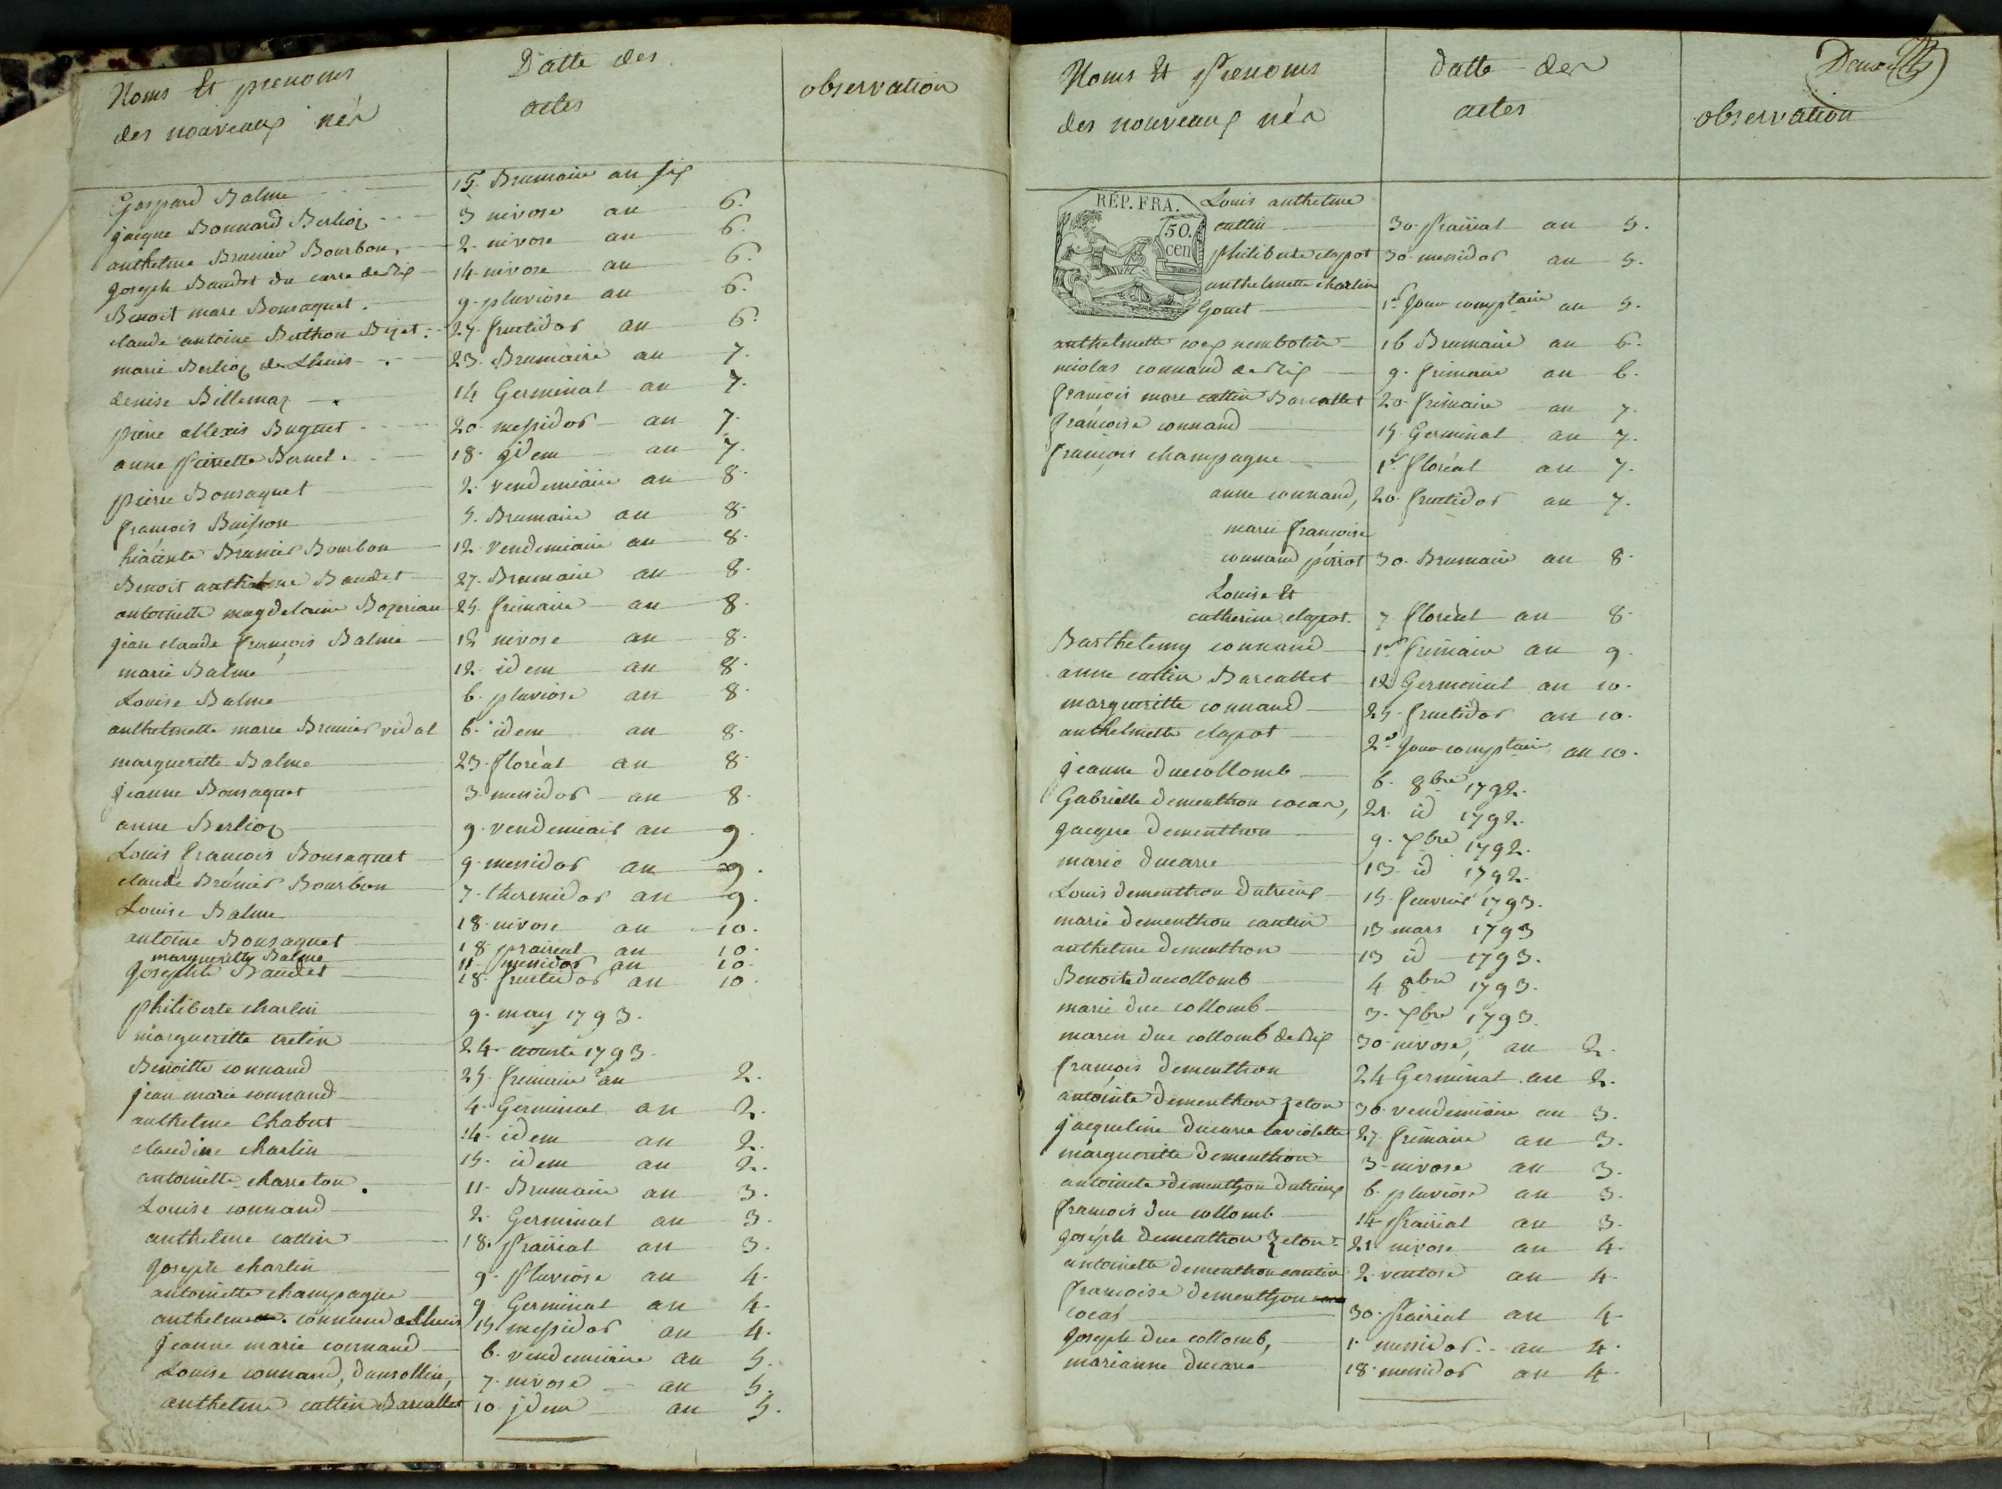 Noms et prenoms
des nouveaux nés
Datte des
actes
observation
Gaspard Balme 15. Brumaire an six
jacque Bonnard Berlioz 3 nivose an 6.
anthelme Brunier Bourbon, 2. nivose an 6.
Joseph Baudet du carre de Rix 14 nivose an 6.
Benoit marc Bonsaquet. 9. pluviose an 6.
claude antoine Berthon Bizet. 27. fructidor an 6.
marie Berlioz de Lhuis 23. Brumaire an 7.
denise Billemaz 14 Germinal an 7.
pierre allexis Buguet 20. messidor an 7.
anne pierrette Bernel. 18. idem an 7.
pierre Bonsaquet 2. vendemiaire an 8.
françois Buisson 5. Brumaire an 8.
hiacinte Brunier Bourbon 12. vendemiaire an 8.
Benoit anthelme Baudet 27. Brumaire an 8.
antoinette magdelaine Bozerian 25. frimaire an 8.
jean claude françois Balme 12 nivose an 8.
marie Balme 12. idem an 8.
Louise Balme 6. pluviose an 8.
anthelmette marie Brunier vidal 6. idem an 8.
marguerette Balme 23. floréal an 8.
jeanne Bonsaquet 3. messidor an 8.
anne Berlioz 9. vendemiair an 9.
Louis francois Bonsaquet 9. messidor an 9.
claude Brunier Bourbon 7. thermidor an 9.
Louise Balme 18. nivose an 10.
antoine Bonsaquet 18 prairial an 10.
marguerette Balme 11 messidor an 10.
Josephte Baudet 18. fructidor an 10.
philiberte charlin 9. may 1793.
marguerette cretin 24. aouste 1793.
Benoitte connand 25. frimaire an 2.
jean marie connand 4. Germinal an 2.
anthelme Chabert 14. idem an 2.
claudine charlin 15. idem an 2.
antoinette charreton. 11. Brumaire an 3.
Louise connand 2. Germinal an 3.
anthelme cattin 18. Prairial an 3.
Joseph charlin 9. Pluviose an 4.
antoinette champagne 9. Germinal an 4.
anthelme connand de Lhuis 15 messidor an 4.
jeanne marie connand 6. vendemiaire an 5.
Louise connand, 7. nivose an 5.
anthelme cattin Barcallet 10 jdem an 5.
Noms et Prenoms
des nouveaux nés
datte des
actes
observation
RÉP. FRA.
50.
cen
Louis anthelme
cattin 30. Prairial an 5.
philiberte clapot 30. messidor an 5.
anthelmette charlin
Gonet 1er Jour comptaire an 5.
anthelmette 16 Brumaire an 6.
nicolas connand de Rix 9. frimaire an 6.
françois marc cattin Barcallet 20. frimaire an 7.
françoise connand 15. Germinal an 7.
françois champagne 1er floréal an 7.
anne connand, 20. fructidor an 7.
marie françoise
connand pérrot 30. Brumaire an 8.
Louise et
catherine clapot. 7 floréal an 8.
Barthelemy connand 1er frimaire an 9.
anne cattin Barcallet 12 Germinal an 10.
marguerette connand 25. fructidor an 10.
anthelmette clapot 2e Jour comptaire an 10.
jeanne duccollomb 6. 8bre 1792.
Gabrielle dementhon cocar, 21. id 1792.
jacque dementhon 9. 7bre 1792.
marie ducarre 13. id 1792.
Louis dementhon dutrieux 15. fevrier 1793.
marie dementhon cantin 13 mars 1793
anthelme dementhon 13 id 1793.
Benoite duccollomb 4 8bre 1793.
marie duc collomb 3. 7bre 1793.
marin duc collomb de Rix 30. nivose, an 2.
françois dementhon 24 Germinal an 2.
antointe dementhon zeton 30. vendemiaire an 3.
jacqueline ducarre laviolette 27. frimaire an 3.
marguerette dementhon 3. nivose an 3.
antoinete dementhon dutrieux 6. pluviose an 3.
francois duc collomb 14 Prairial an 3.
joséph dementhon zeton 21. nivose an 4.
antoinette dementhon cantin 2. ventose an 4.
françoise dementhon
cocas 30. Prairial an 4.
joseph duc collomb, 1. messidor an 4.
marianne ducarre 18. messidor an 4.